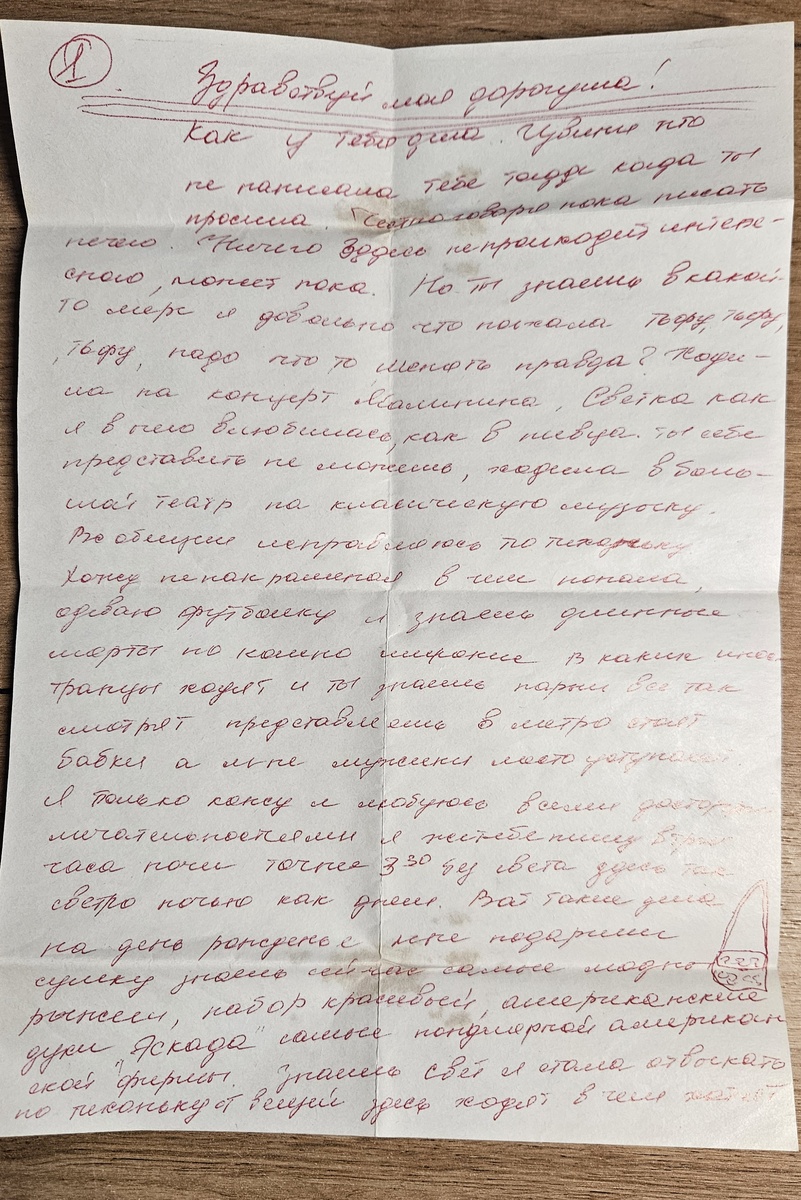 1
Здравствуй моя дорогуша!
Как у тебя дела. Извини что
не написала тебе тогда когда ты
просила. Честно говоря пока писать
нечего. Ничего здесь не происходит интере-
сного, может пока. Но ты знаешь в какой-
то мере я довольна что поехала тьфу, тьфу,
тьфу, надо что то менять правда? Ходи-
ла на концерт Малинина, Светка как
я в него влюбилась, как в певца. ты себе
представить не можешь, ходила в боль-
шой театр на классическую музыку.
Вообщем исправляюсь по тихоньку
Хожу ненакрашеная в чем попала,
одеваю футболку и знаешь длинные
шорты но камно широкие в каких инос-
транцы ходят и ты знаешь парни все так
смотрят представляешь в метро стоят
бабки а мне мужики место уступают.
Я только хожу и любуюсь всеми достопри
мечательностями я же тебе пишу в три
часа ночи точнее 3 30 без света здесь так
светло ночью как днем. Вот такие дела
на день рожденье мне подарили
сумку знаешь сейчас самые модные
рыжели, набор красивый, американские
духи "Яскада" самые популярной американ
ской фирмы. Знаешь свет я стала отвыкать
по тихоньку от вещей здесь ходят в чем хотят